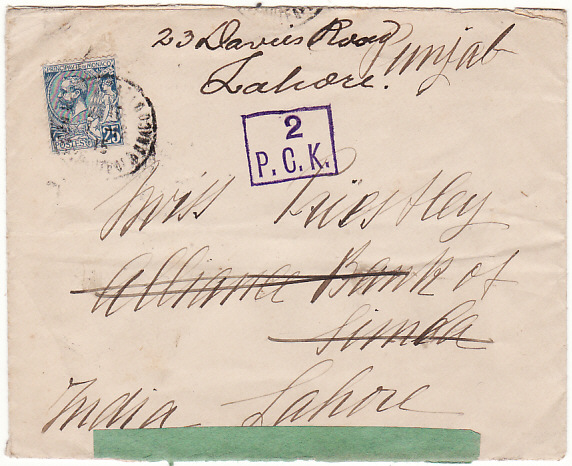 23 Davies Road
Lahore. Punjab
PRINCIPAUTÉ DE MONACO
25
POSTES
2
P.C.K.
Miss Priestley
Alliance Bank of
Simla
India Lahore